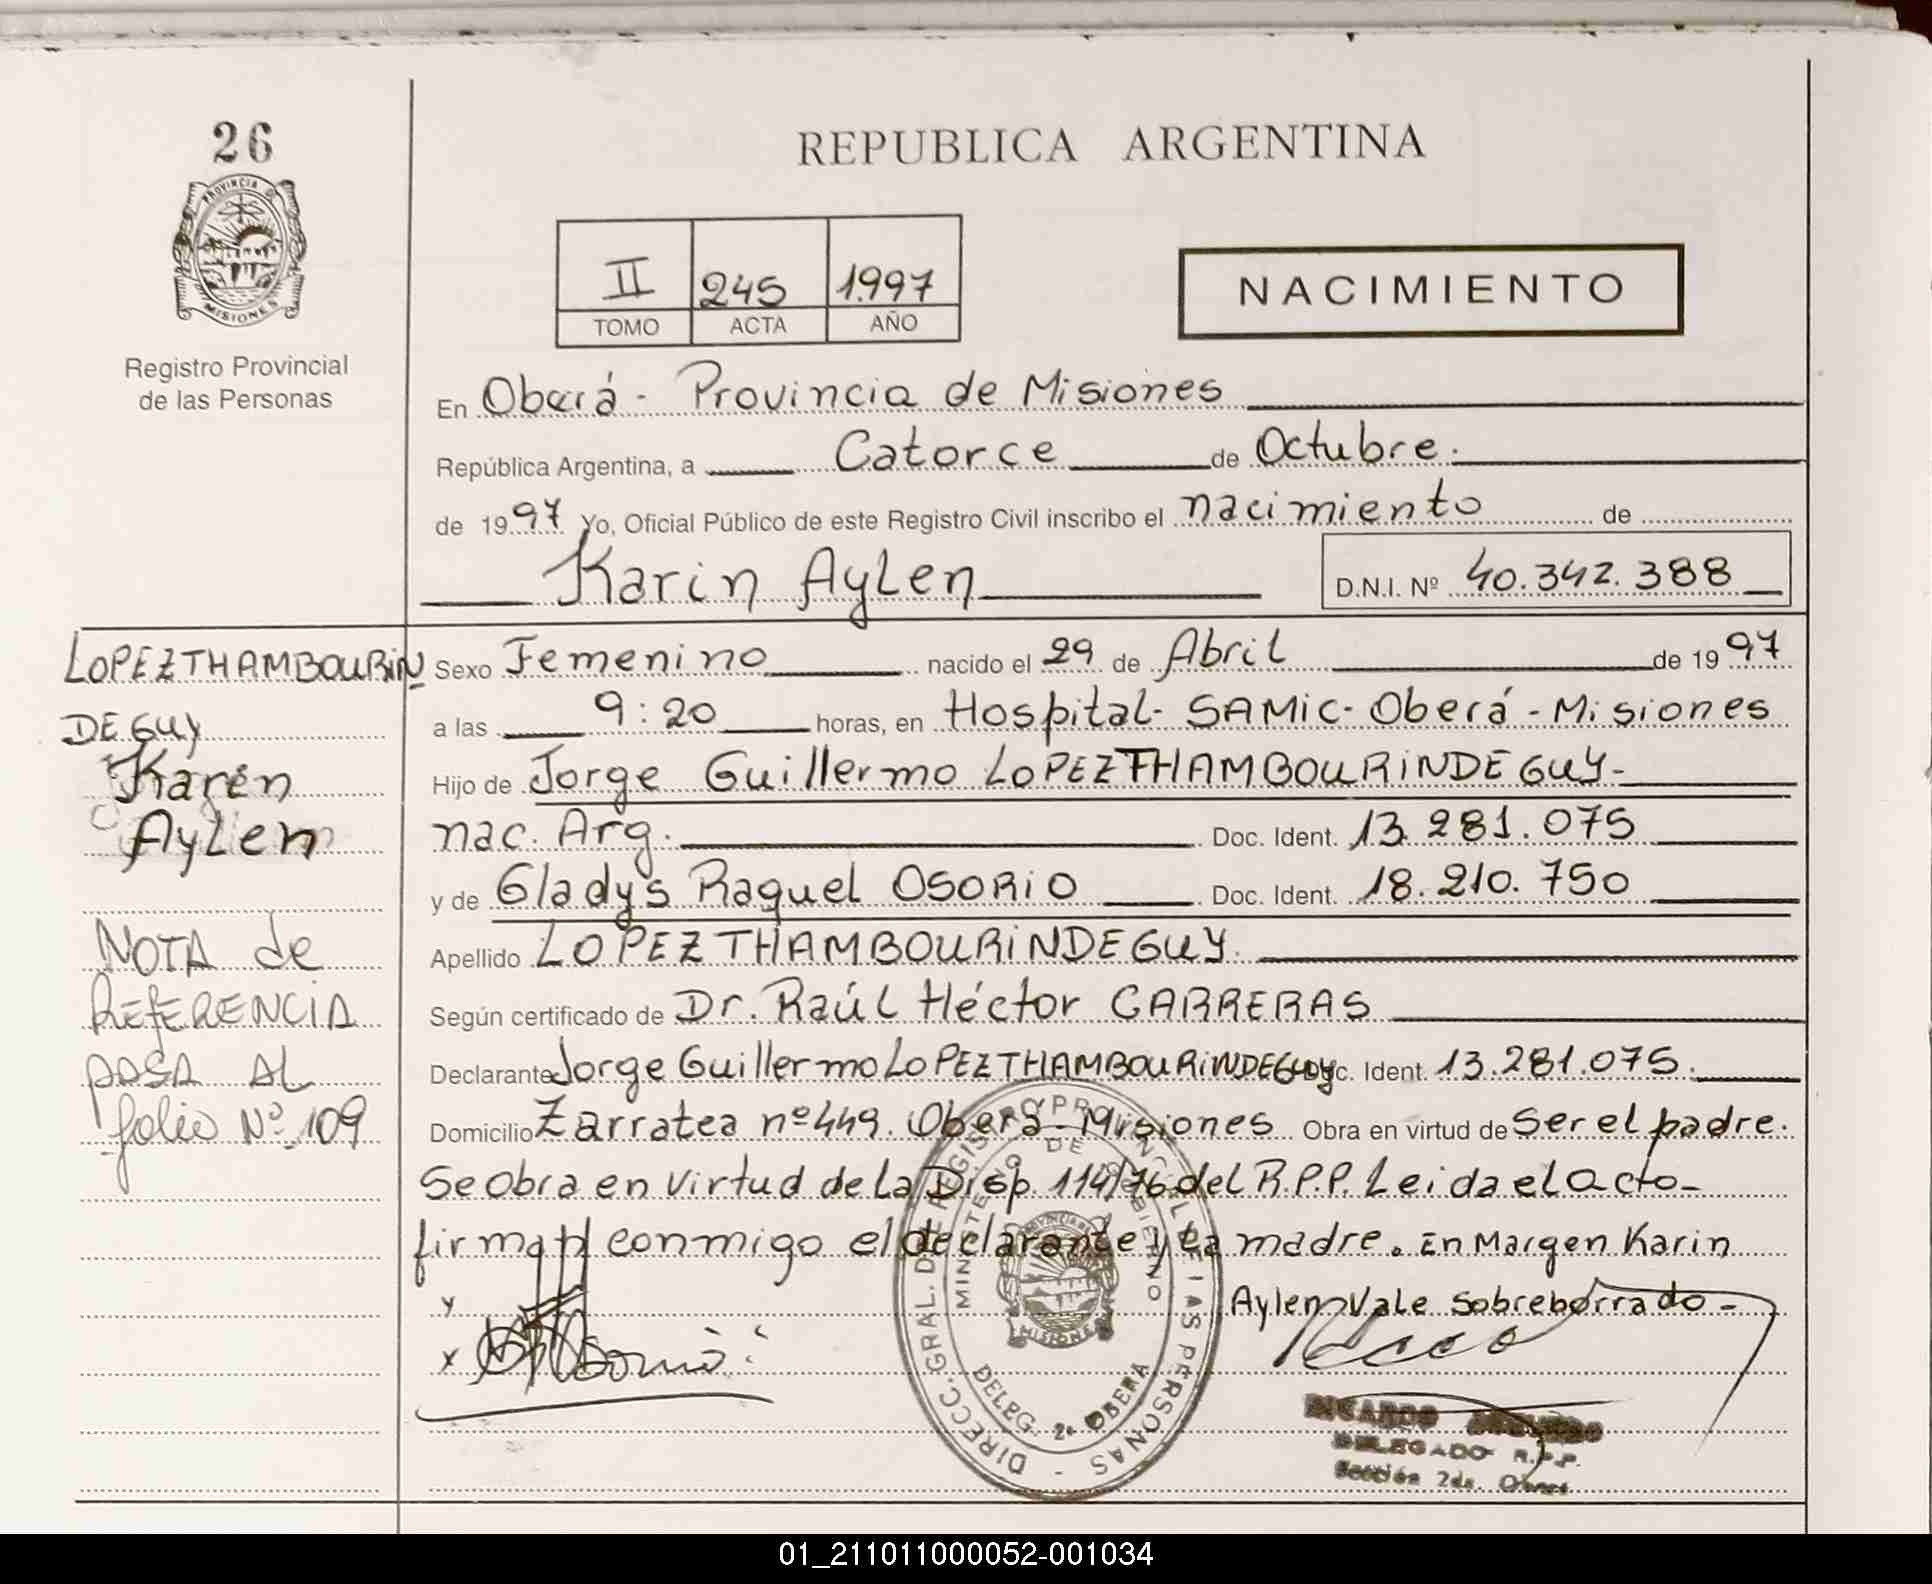 26
PROVINCIA D
MISIONES
Registro Provincial
de las Personas
REPUBLICA ARGENTINA
II 245 1.997
TOMO ACTA AÑO
NACIMIENTO
En Oberá - Provincia de Misiones
República Argentina, a Catorce de Octubre.
de 1997 Yo, Oficial Público de este Registro Civil inscribo el nacimiento de
Karin Aylen
D.N.I. Nº 40.342.388
LOPEZTHAMBOURIN
DEGUY
Karin
Aylen
NOTA de
REFERENCIA
PASA AL
folio Nº 109
Sexo Femenino nacido el 29 de Abril de 1997
a las 9:20 horas, en Hospital- SAMIC- Oberá - Misiones
Hijo de Jorge Guillermo LOPEZTHAMBOURINDEGUY-
nac. Arg. Doc. Ident. 13.281.075
y de Gladys Raquel OSORIO Doc. Ident. 18.210.750
Apellido LOPEZTHAMBOURINDEGUY.
Según certificado de Dr. Raúl Héctor CARRERAS
Declarante Jorge Guillermo LOPEZTHAMBOURINDEGUY Doc. Ident. 13.281.075.
Domicilio Zarratea nº 449. Oberá - Misiones Obra en virtud de Ser el padre.
Se Obra en Virtud de la Disp. 114/76 del R.P.P. Leida el acto-
firman conmigo el declarante y la madre. En Margen Karin
Aylen Vale Sobreborrado-
DIRECC. GRAL. DE REGISTRO PROVINCIAL DE LAS PERSONAS -
MINISTERIO DE GOBIERNO
MISIONES
DELEG. 2ª OBERA
DELEGADO R.P.P.
Sección 2da.
01_211011000052-001034